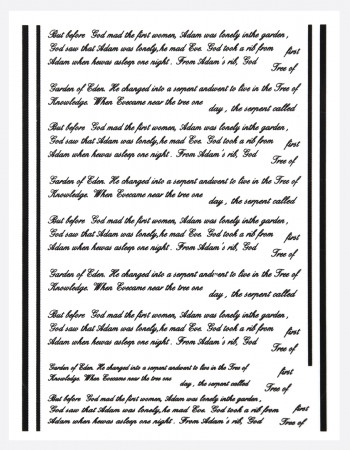 But before God mad the first women, Adam was lonely inthe garden,
God saw that Adam was lonely,he mad Eve. God took a rib from first
Adam when hewas asleep one night. From Adam's rib, God Tree of
Garden of Eden. He changed into a serpent andwent to live in the Tree of
Knowledge. When Evecame near the tree one day, the serpent called
But before God mad the first women, Adam was lonely inthe garden,
God saw that Adam was lonely,he mad Eve. God took a rib from first
Adam when hewas asleep one night. From Adam's rib, God Tree of
Garden of Eden. He changed into a serpent andwent to live in the Tree of
Knowledge. When Evecame near the tree one day, the serpent called
But before God mad the first women, Adam was lonely inthe garden,
God saw that Adam was lonely,he mad Eve. God took a rib from first
Adam when hewas asleep one night. From Adam's rib, God Tree of
Garden of Eden. He changed into a serpent andwent to live in the Tree of
Knowledge. When Evecame near the tree one day, the serpent called
But before God mad the first women, Adam was lonely inthe garden,
God saw that Adam was lonely,he mad Eve. God took a rib from first
Adam when hewas asleep one night. From Adam's rib, God Tree of
Garden of Eden. He changed into a serpent andwent to live in the Tree of
Knowledge. When Evecame near the tree one day, the serpent called Tree of
But before God mad the first women, Adam was lonely inthe garden,
God saw that Adam was lonely,he mad Eve. God took a rib from first
Adam when hewas asleep one night. From Adam's rib, God Tree of